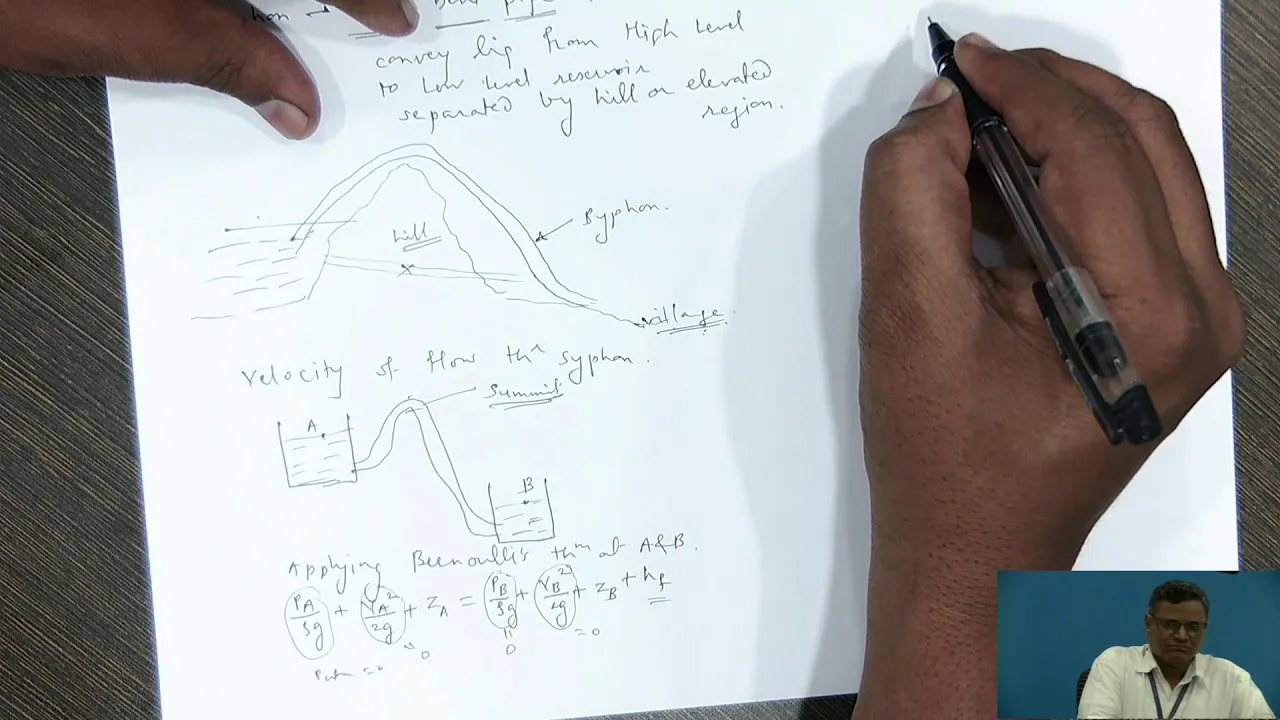 Bent pipe
convey liq from High Level
to Low Level reservoir
separated by hill or elevated
region.
hill
Syphon.
village.
Velocity of flow thr syphon.
Summit
A
B
Applying Bernoulli's thm at A&B.
P_A/ρg + V_A²/2g + Z_A = P_B/ρg + V_B²/2g + Z_B + h_f
Patm = 0
= 0
0
= 0